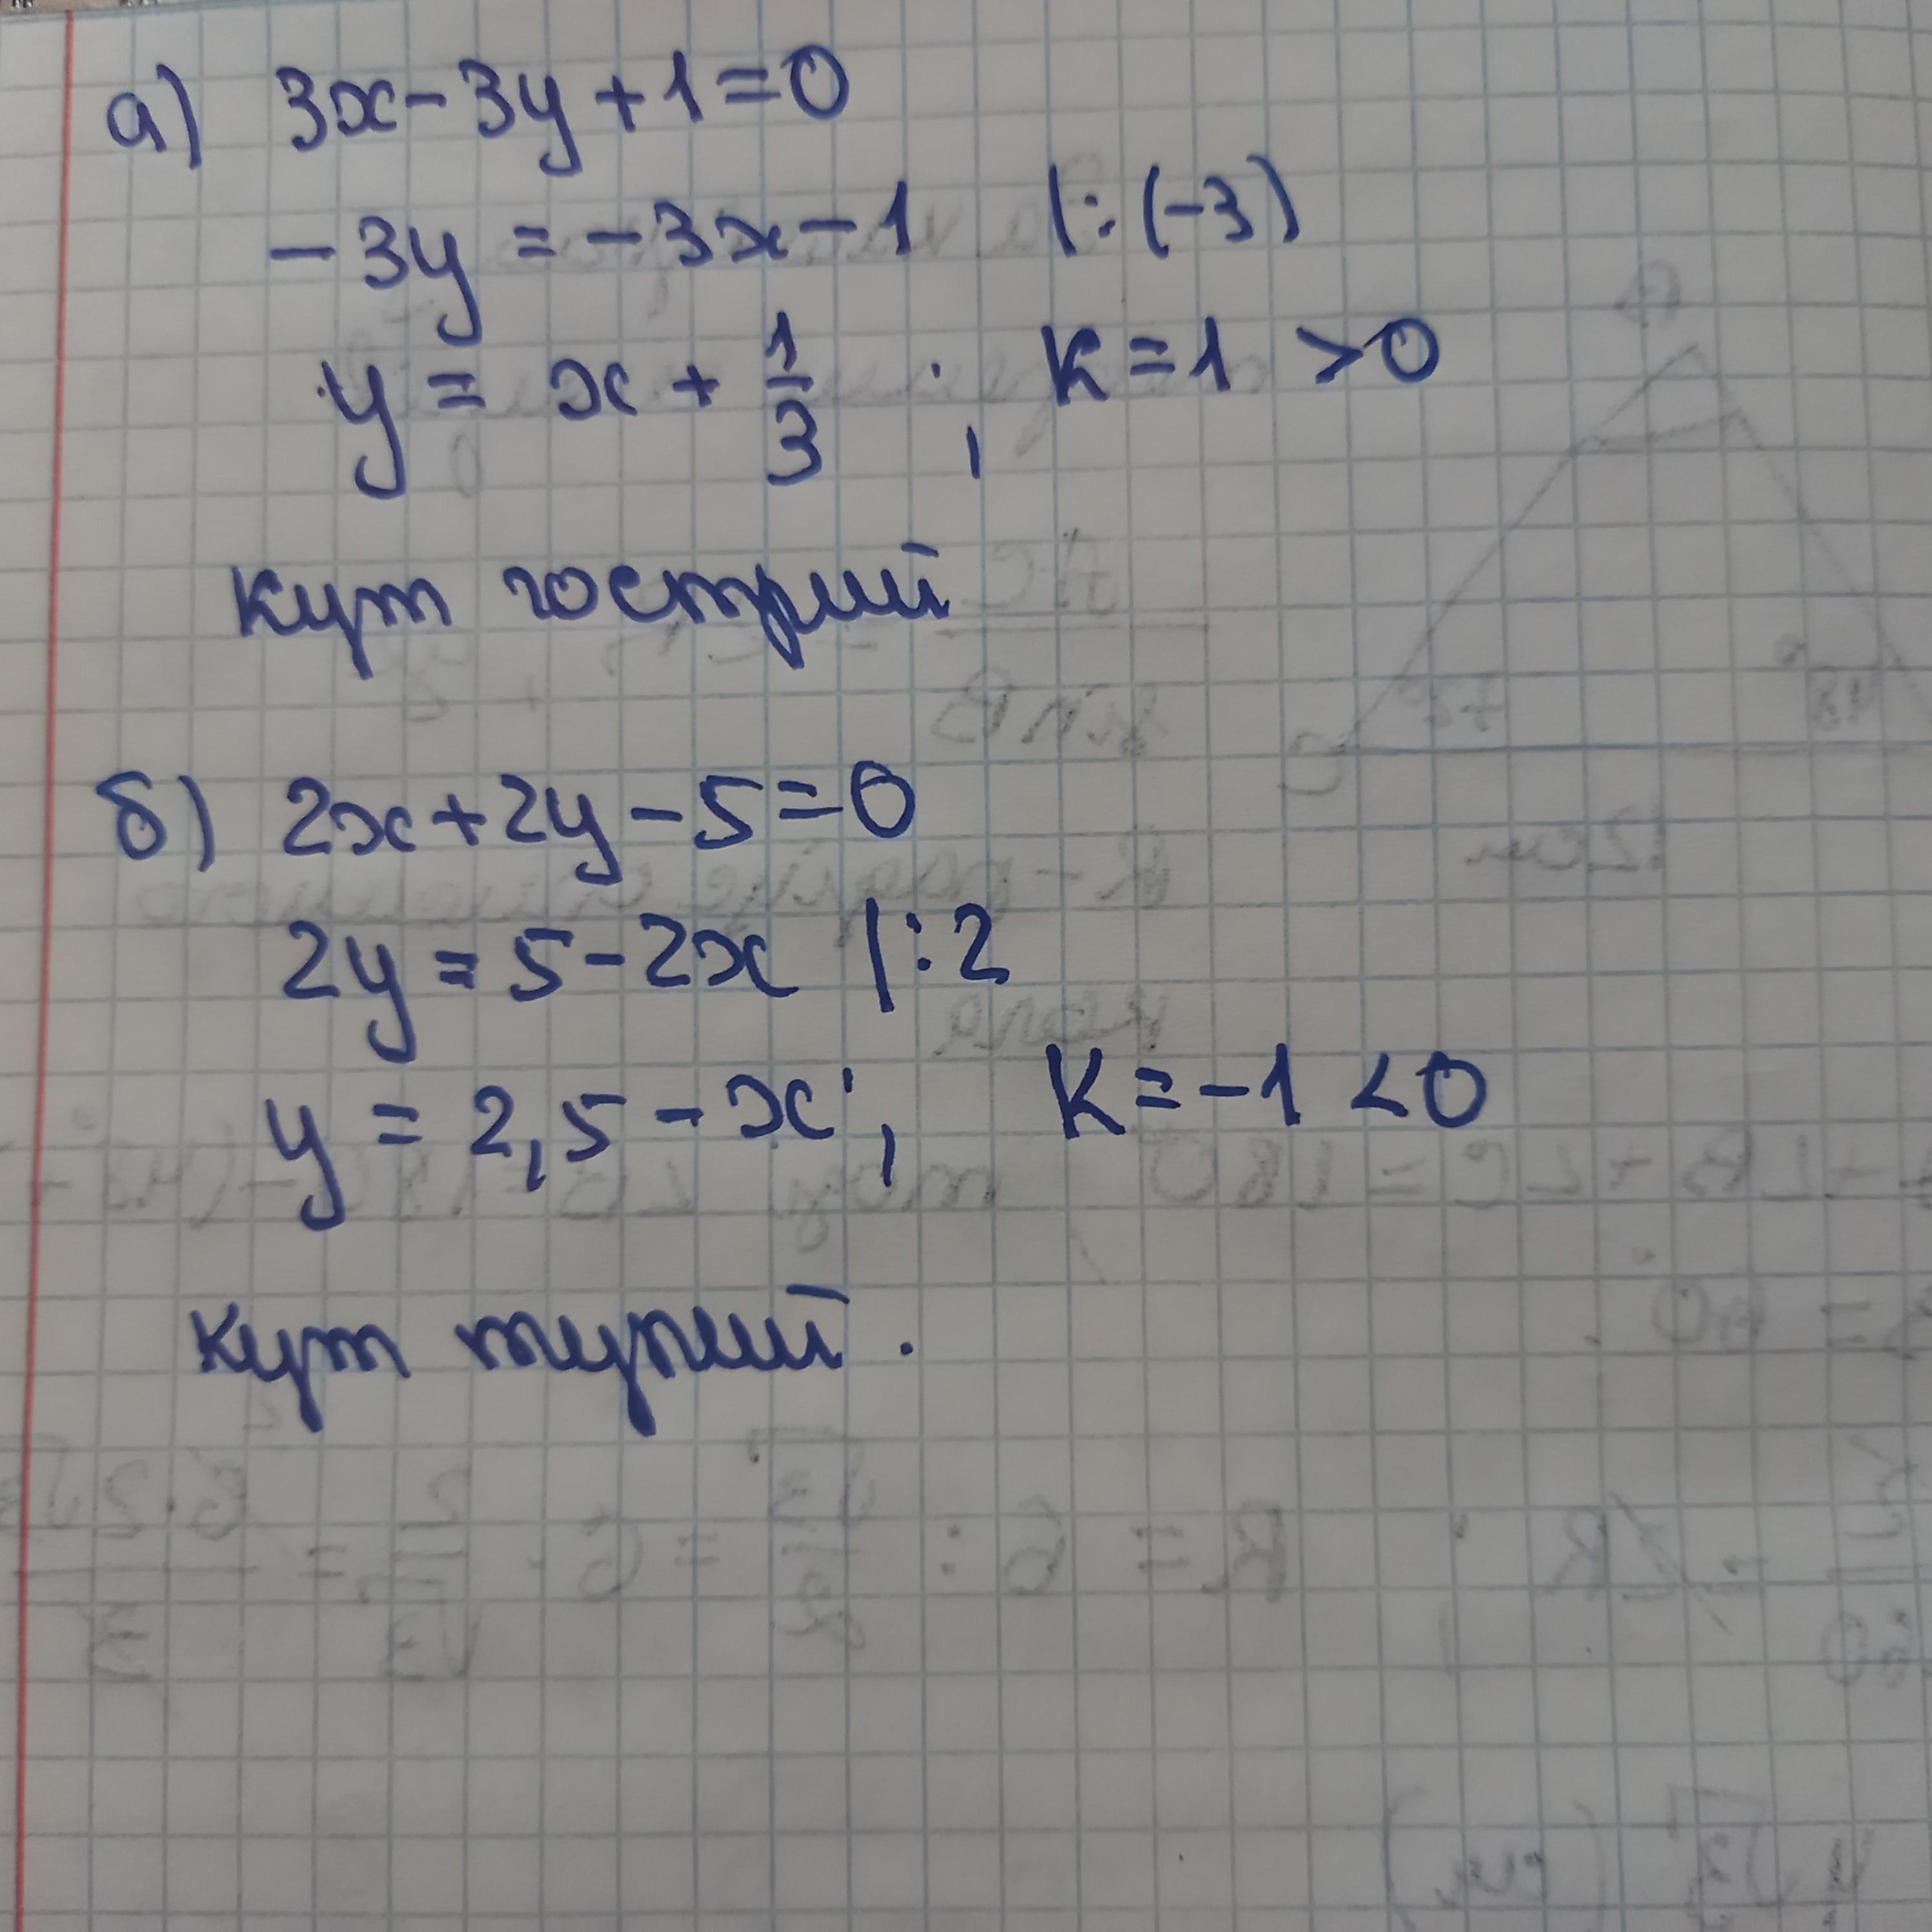 а) 3x-3y+1=0
-3y = -3x-1 |:(-3)
y = x + 1/3 ; k=1 >0
кут гострий
б) 2x+2y-5=0
2y = 5-2x |:2
y = 2,5-x; k=-1 <0
кут тупий.